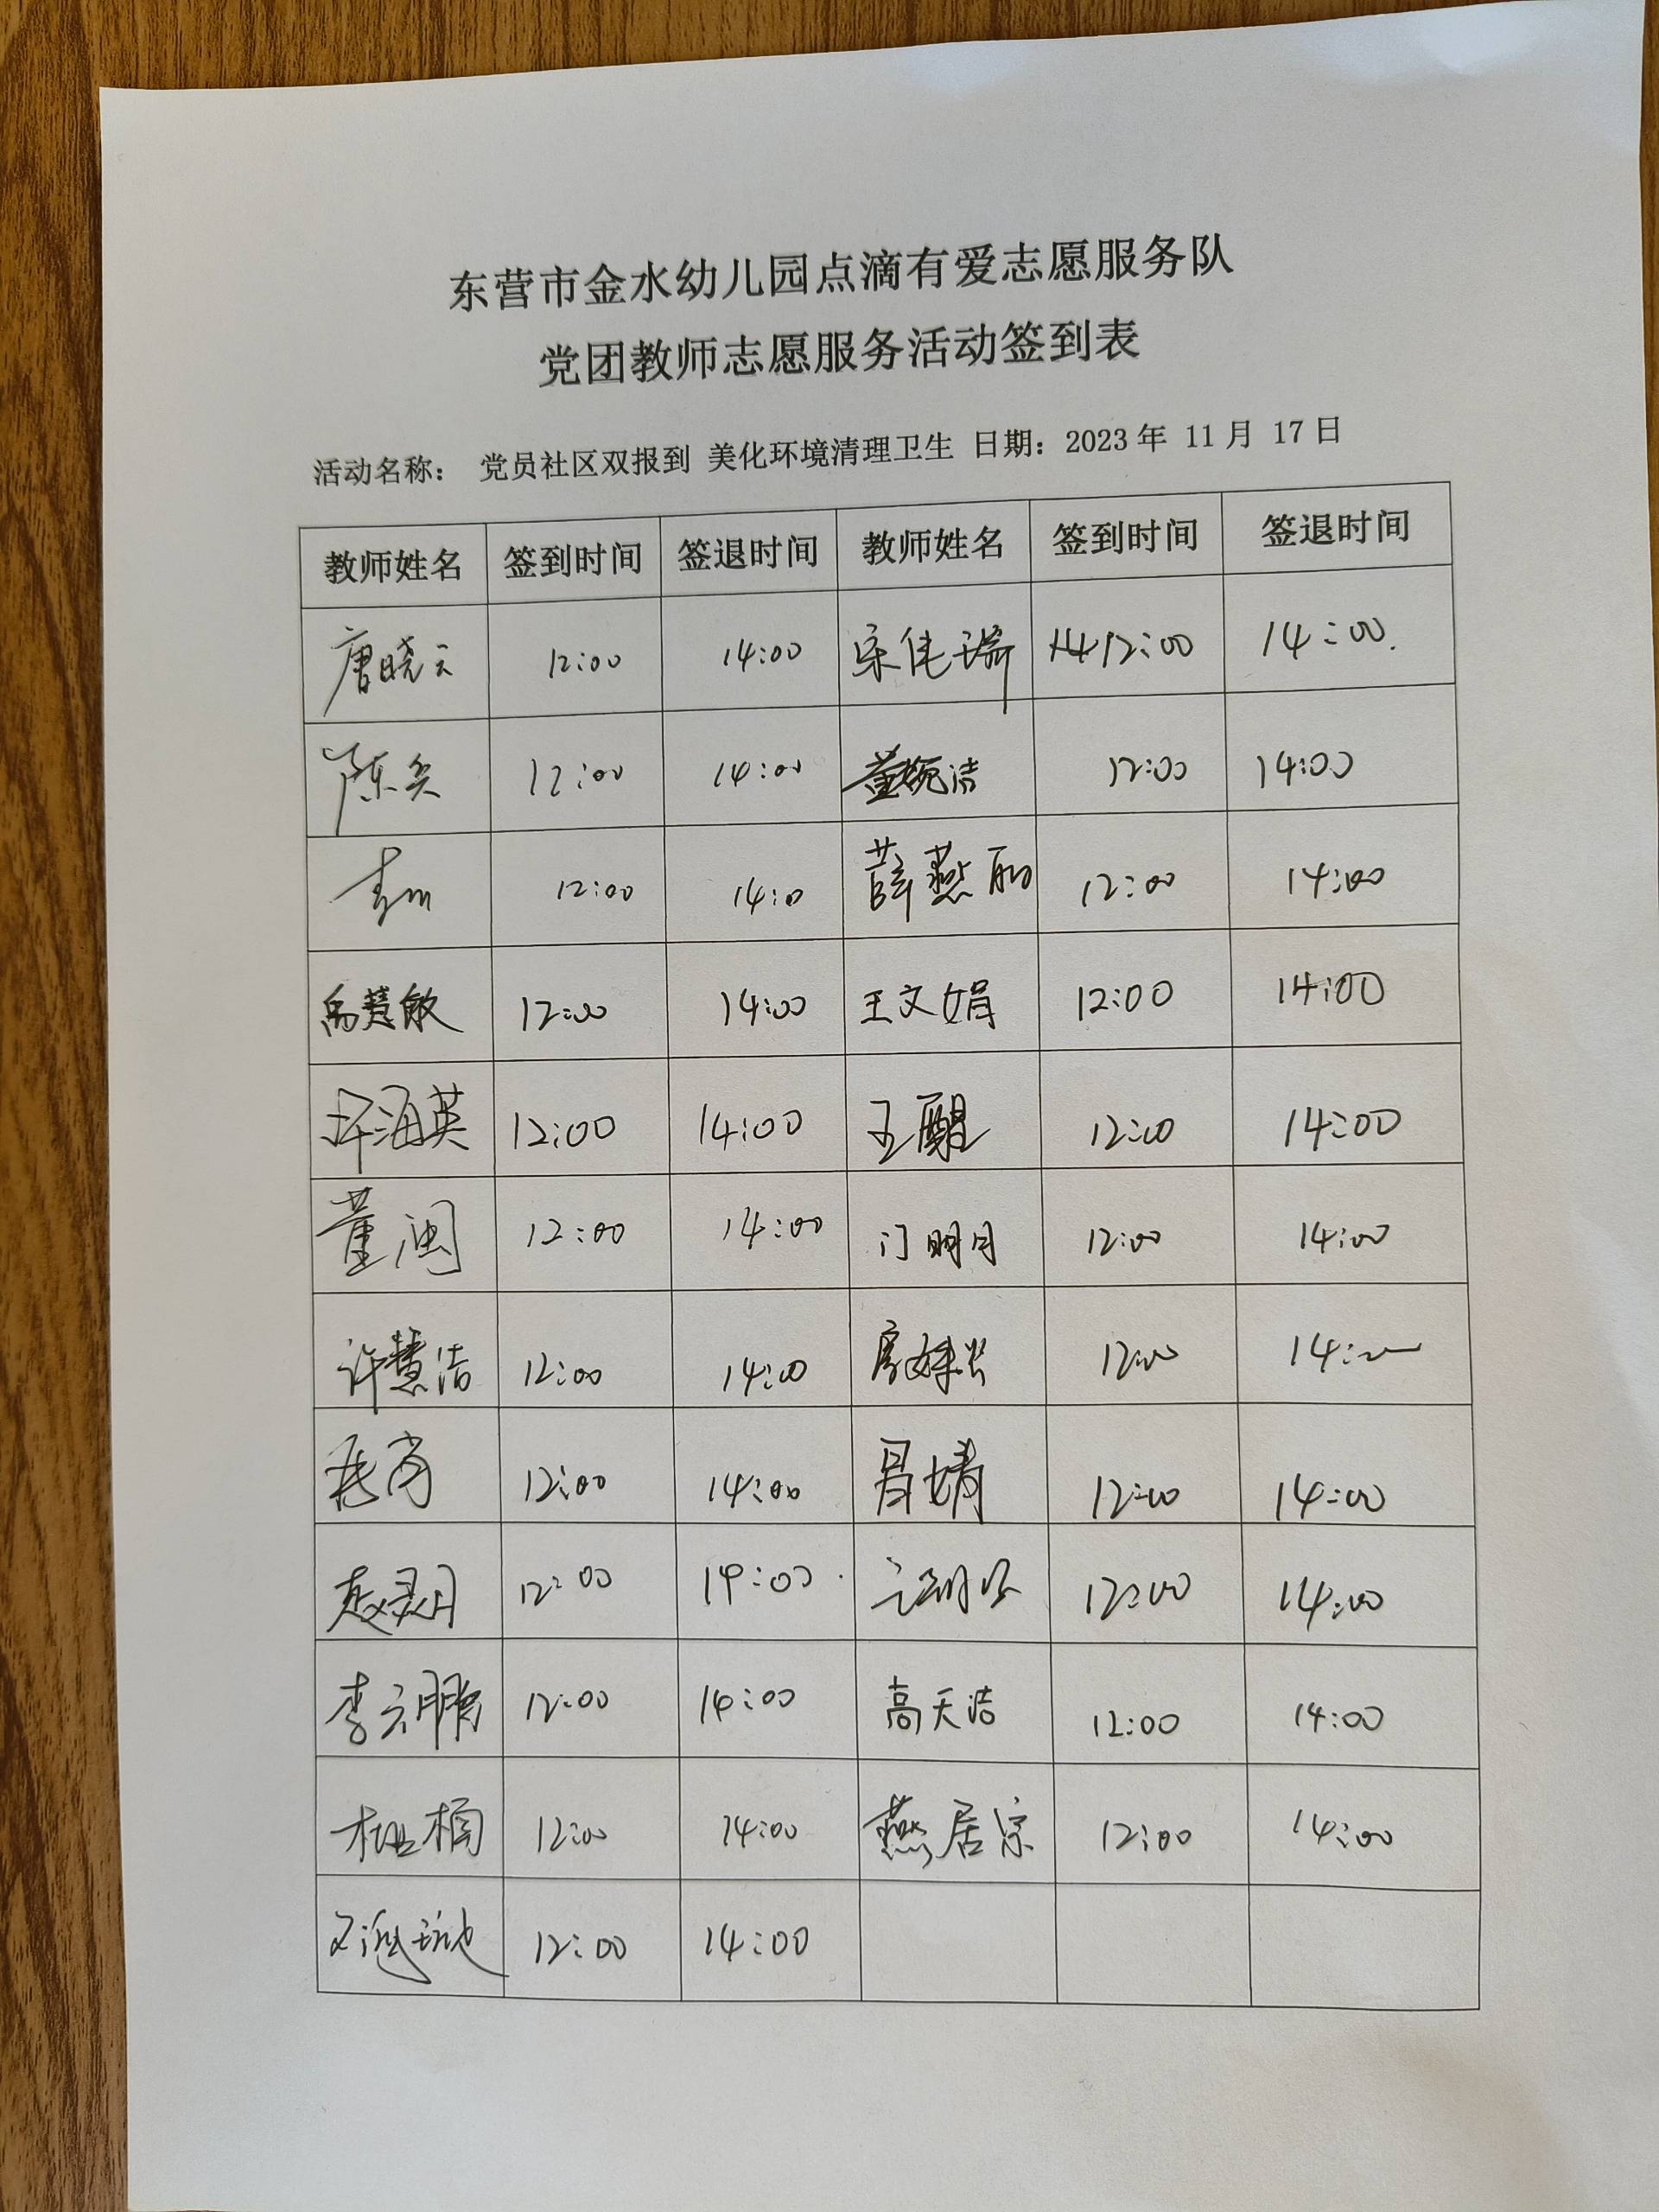 东营市金水幼儿园点滴有爱志愿服务队
党团教师志愿服务活动签到表
活动名称： 党员社区双报到 美化环境清理卫生 日期：2023年 11月 17日
教师姓名 签到时间 签退时间 教师姓名 签到时间 签退时间
唐晓云 12:00 14:00 宋佳瑞 12:00 14:00.
陈 12:00 14:00 董婉洁 12:00 14:00
12:00 14:0 薛燕丽 12:00 14:00
禹慧敏 12:00 14:00 王文娟 12:00 14:00
许海英 12:00 14:00 王醒 12:00 14:00
董闽 12:00 14:00 门明月 12:00 14:00
许慧洁 12:00 14:00 12:00 14:00
12:00 14:00 吕婧 12:00 14:00
赵灵月 12:00 14:00 12:00 14:00
李云鹏 12:00 14:00 高天浩 12:00 14:00
楠 12:00 14:00 燕居宗 12:00 14:00
12:00 14:00